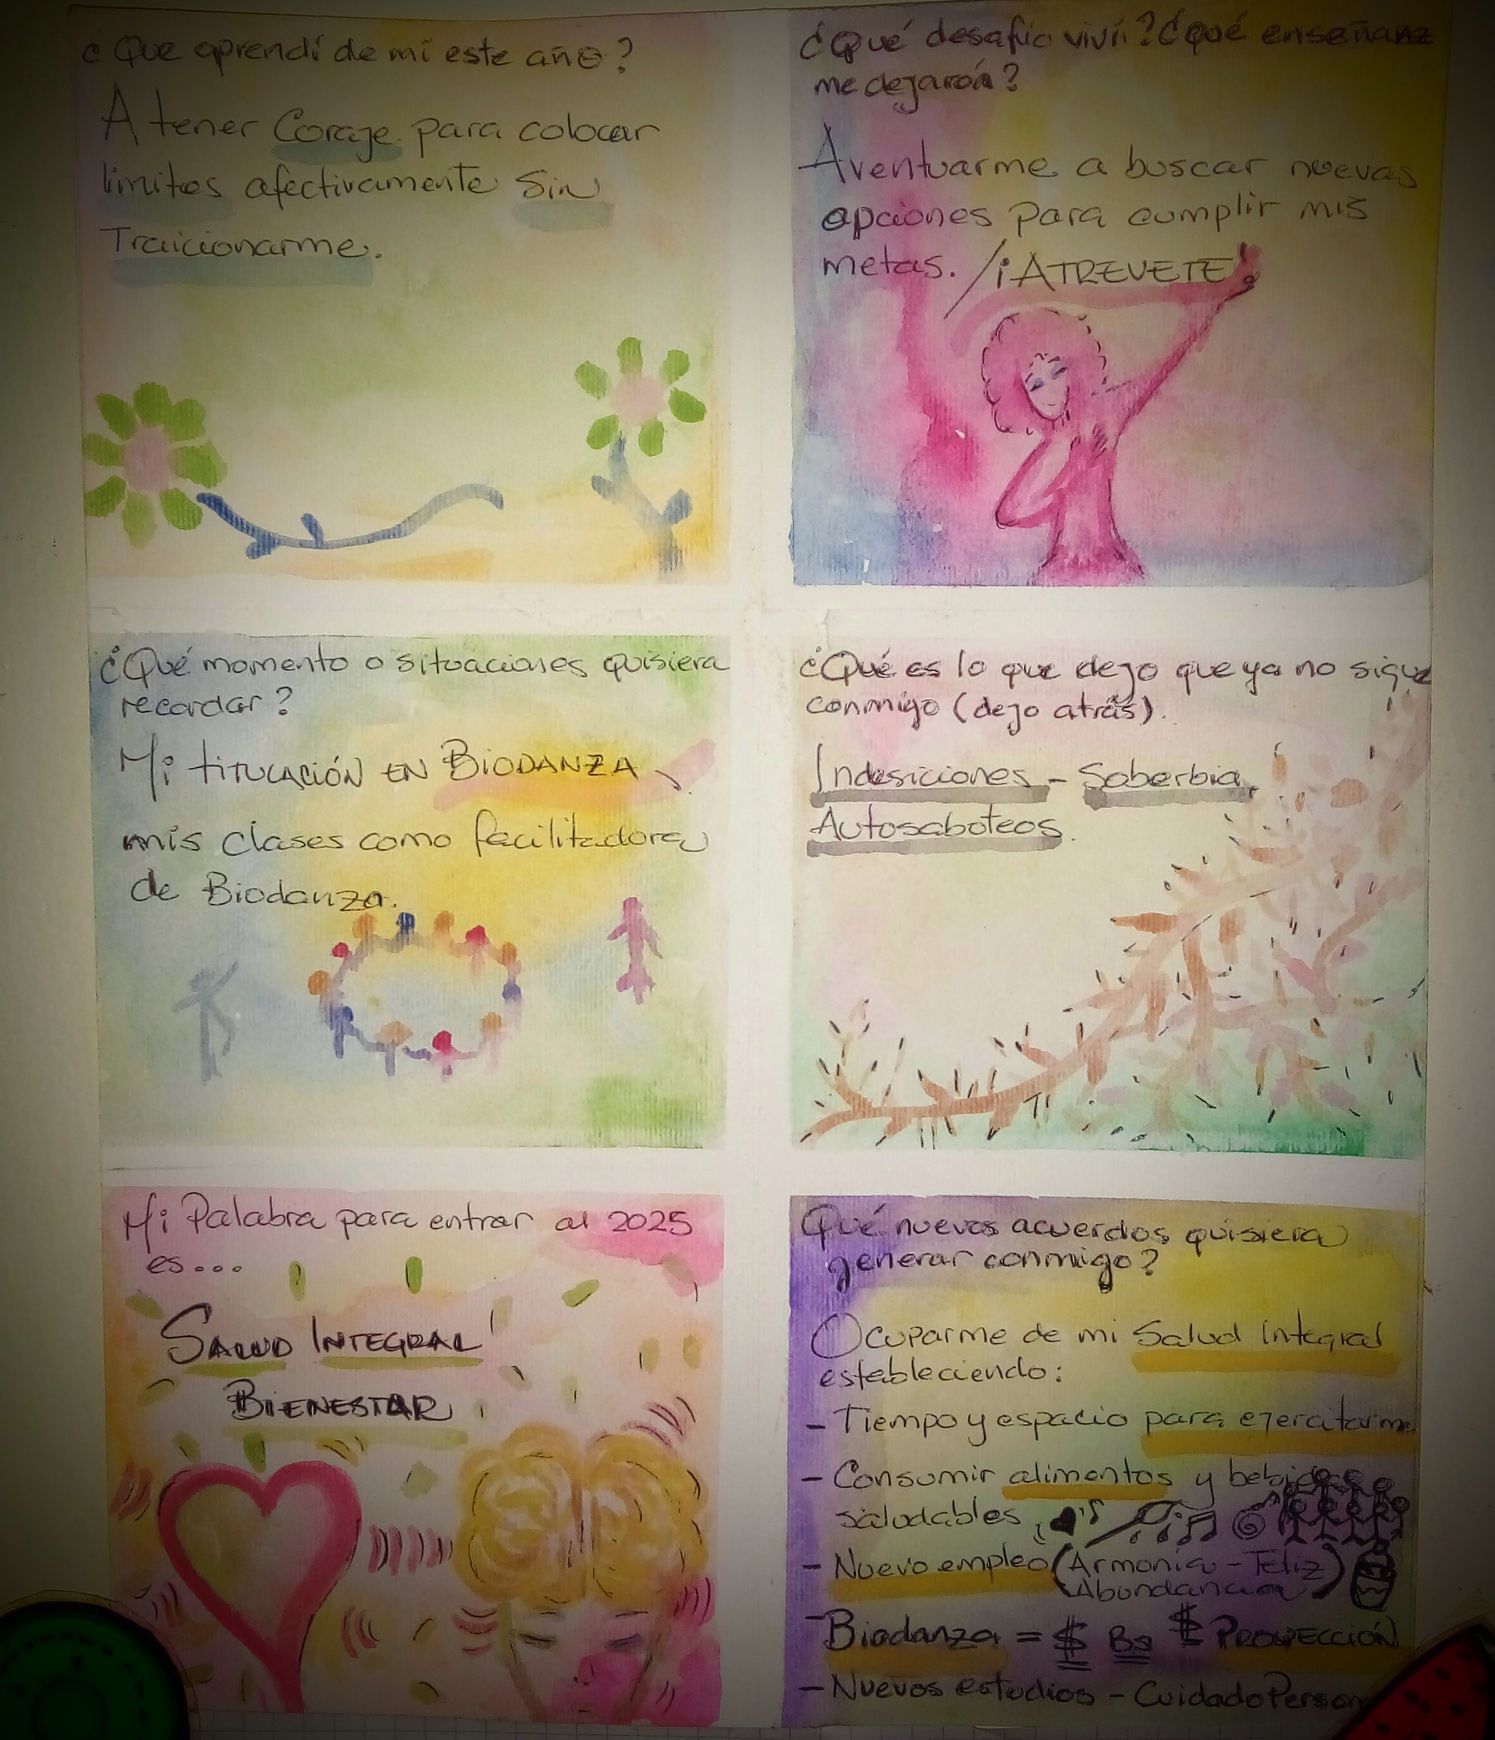 ¿Que aprendí de mi este año?
A tener Coraje para colocar
limites afectivamente Sin
Traicionarme.
¿Qué desafío viví? ¿qué enseñanz
me dejarón?
Aventuarme a buscar nuevas
opciones para cumplir mis
metas. / ¡ATREVETE!
¿Qué momento o situaciones quisiera
recordar?
Mi titulación en Biodanza,
mis clases como facilitadora
de Biodanza.
¿Qué es lo que dejo que ya no sigue
conmigo (dejo atrás).
Indesiciones - Soberbia,
Autosaboteos.
Mi Palabra para entrar al 2025
es...
Salud Integral
Bienestar
Qué nuevos acuerdos quisiera
generar conmigo?
Ocuparme de mi Salud integral
estableciendo:
- Tiempo y espacio para ejercitarme
- Consumir alimentos y bebidas
saludables,
- Nuevo empleo (Armonía - Feliz
Abundancia)
- Biodanza = $ Bs $ Proyección
- Nuevos estudios - Cuidado Person